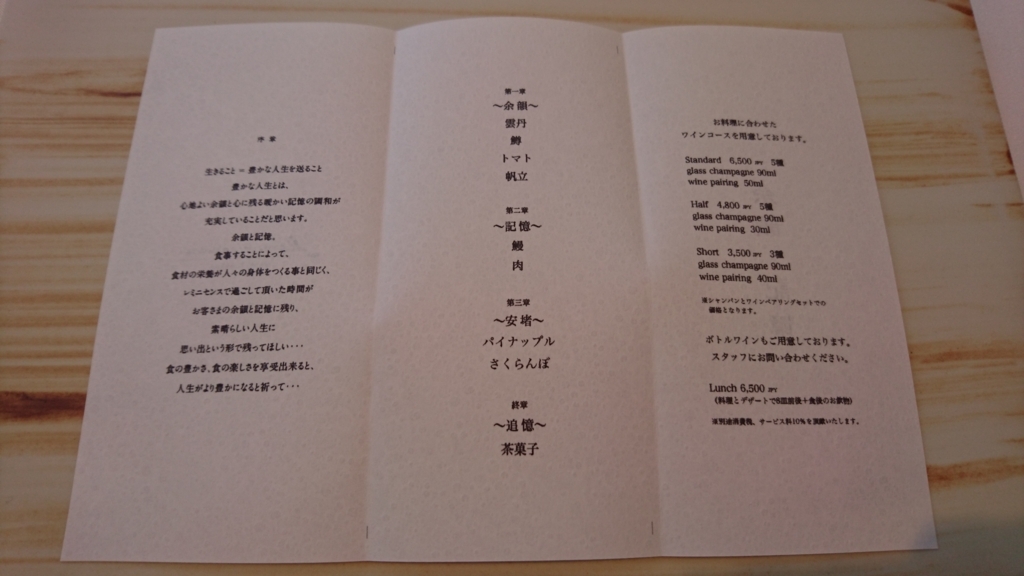 序章
生きること = 豊かな人生を送ること
豊かな人生とは、
心地よい余韻と心に残る暖かい記憶の調和が
充実していることだと思います。
余韻と記憶。
食事することによって、
食材の栄養が人々の身体をつくる事と同じく、
レミニセンスで過ごして頂いた時間が
お客さまの余韻と記憶に残り、
素晴らしい人生に
思い出という形で残ってほしい・・・
食の豊かさ、食の楽しさを享受出来ると、
人生がより豊かになると祈って・・・
第一章
〜余韻〜
雲丹
鱒
トマト
帆立
第二章
〜記憶〜
鰻
肉
第三章
〜安堵〜
パイナップル
さくらんぼ
終章
〜追憶〜
茶菓子
お料理に合わせた
ワインコースを用意しております。
Standard 6,500 JPY 5種
glass champagne 90ml
wine pairing 50ml
Half 4,800 JPY 5種
glass champagne 90ml
wine pairing 30ml
Short 3,500 JPY 3種
glass champagne 90ml
wine pairing 40ml
※シャンパンとワインペアリングセットでの
価格となります。
ボトルワインもご用意しております。
スタッフにお問い合わせください。
Lunch 6,500 JPY
(料理とデザートで6皿前後+食後のお飲物)
※別途消費税、サービス料10%を頂戴いたします。